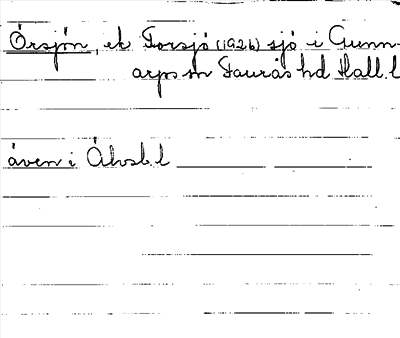 Örsjön, ek Torsjö (1926) sjö i Gunn-
arps sn Faurås hd Hall. l
även i Älvsb. l